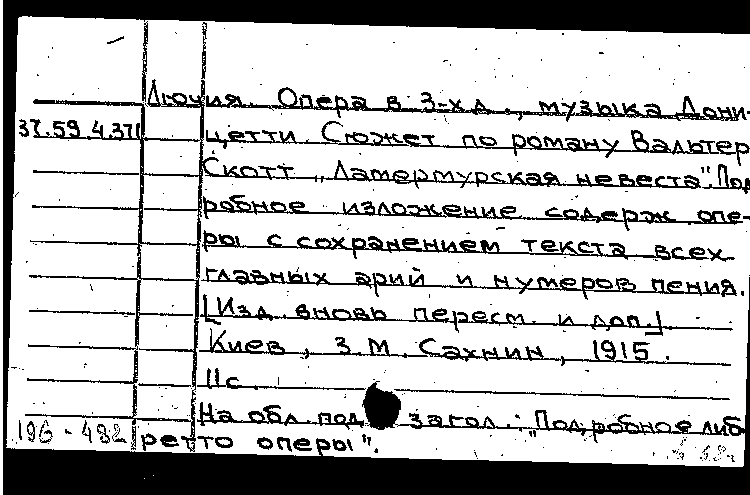 Лючия. Опера в 3-х д., музыка Дони-
37.59 4.371 цетти Сюжет по роману Вальтер
Скотт „Ламермурская невеста". Под
робное изложение содерж опе-
ры с сохранением текста всех
главных арий и нумеров пения.
[Изд. вновь пересм. и доп.]
Киев, З.М. Сахнин, 1915.
11с.
На обл. под загол.: „Подробное либ
196-482 ретто оперы".